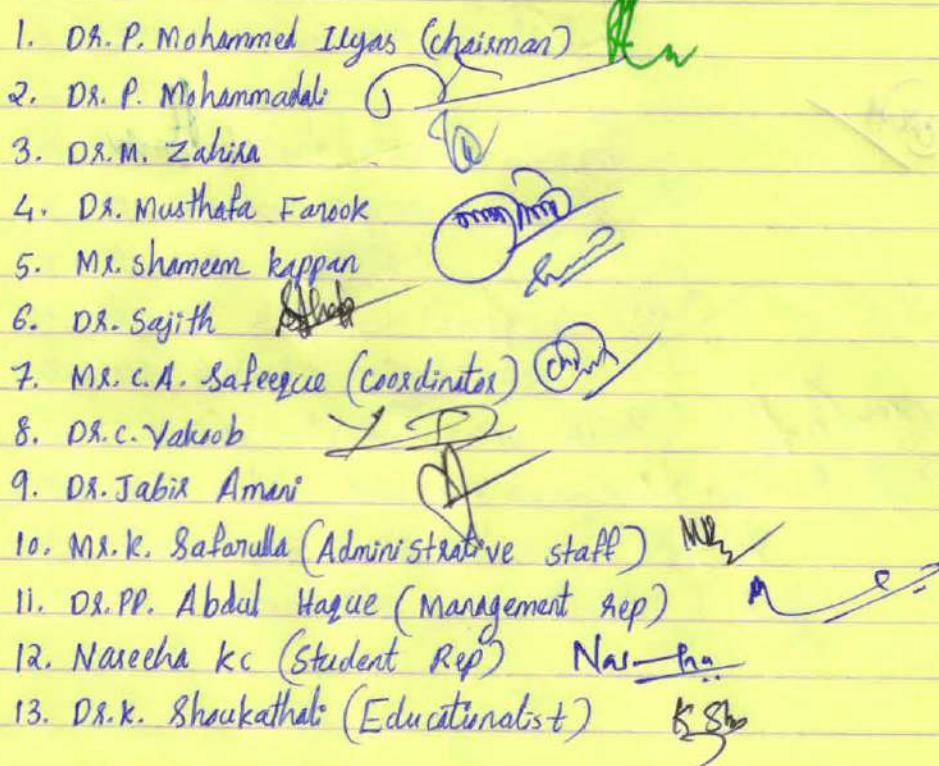 1. DR. P. Mohammed Ilyas (chairman)
2. DR. P. Mohammadali
3. DR. M. Zahira
4. DR. Musthafa Farook
5. MR. shameem kappan
6. DR. Sajith
7. MR. C.A. Safeeque (Coordinator)
8. DR. C. Yakoob
9. DR. Jabir Amani
10. MR. K. Safarulla (Administrative staff)
11. DR. PP. Abdul Haque (Management rep)
12. Naseeha kc (Student Rep)
13. DR. K. Shoukathali (Educationalist)